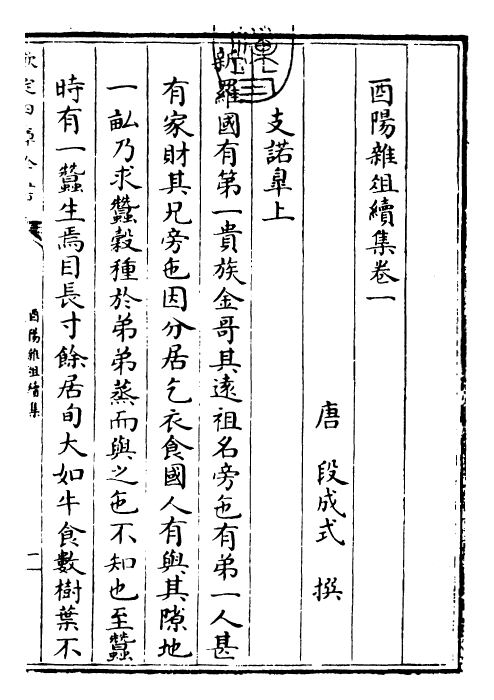 酉陽雜俎續集卷一
唐 段成式 撰
支諾臯上
新羅國有第一貴族金哥其遠祖名旁㐌有弟一人甚
有家財其兄旁㐌因分居乞衣食國人有與其隙地
一畝乃求蠶穀種於弟弟蒸而與之㐌不知也至蠶
時有一蠶生焉目長寸餘居旬大如牛食數樹葉不
欽定四庫全書
酉陽雜俎續集
一